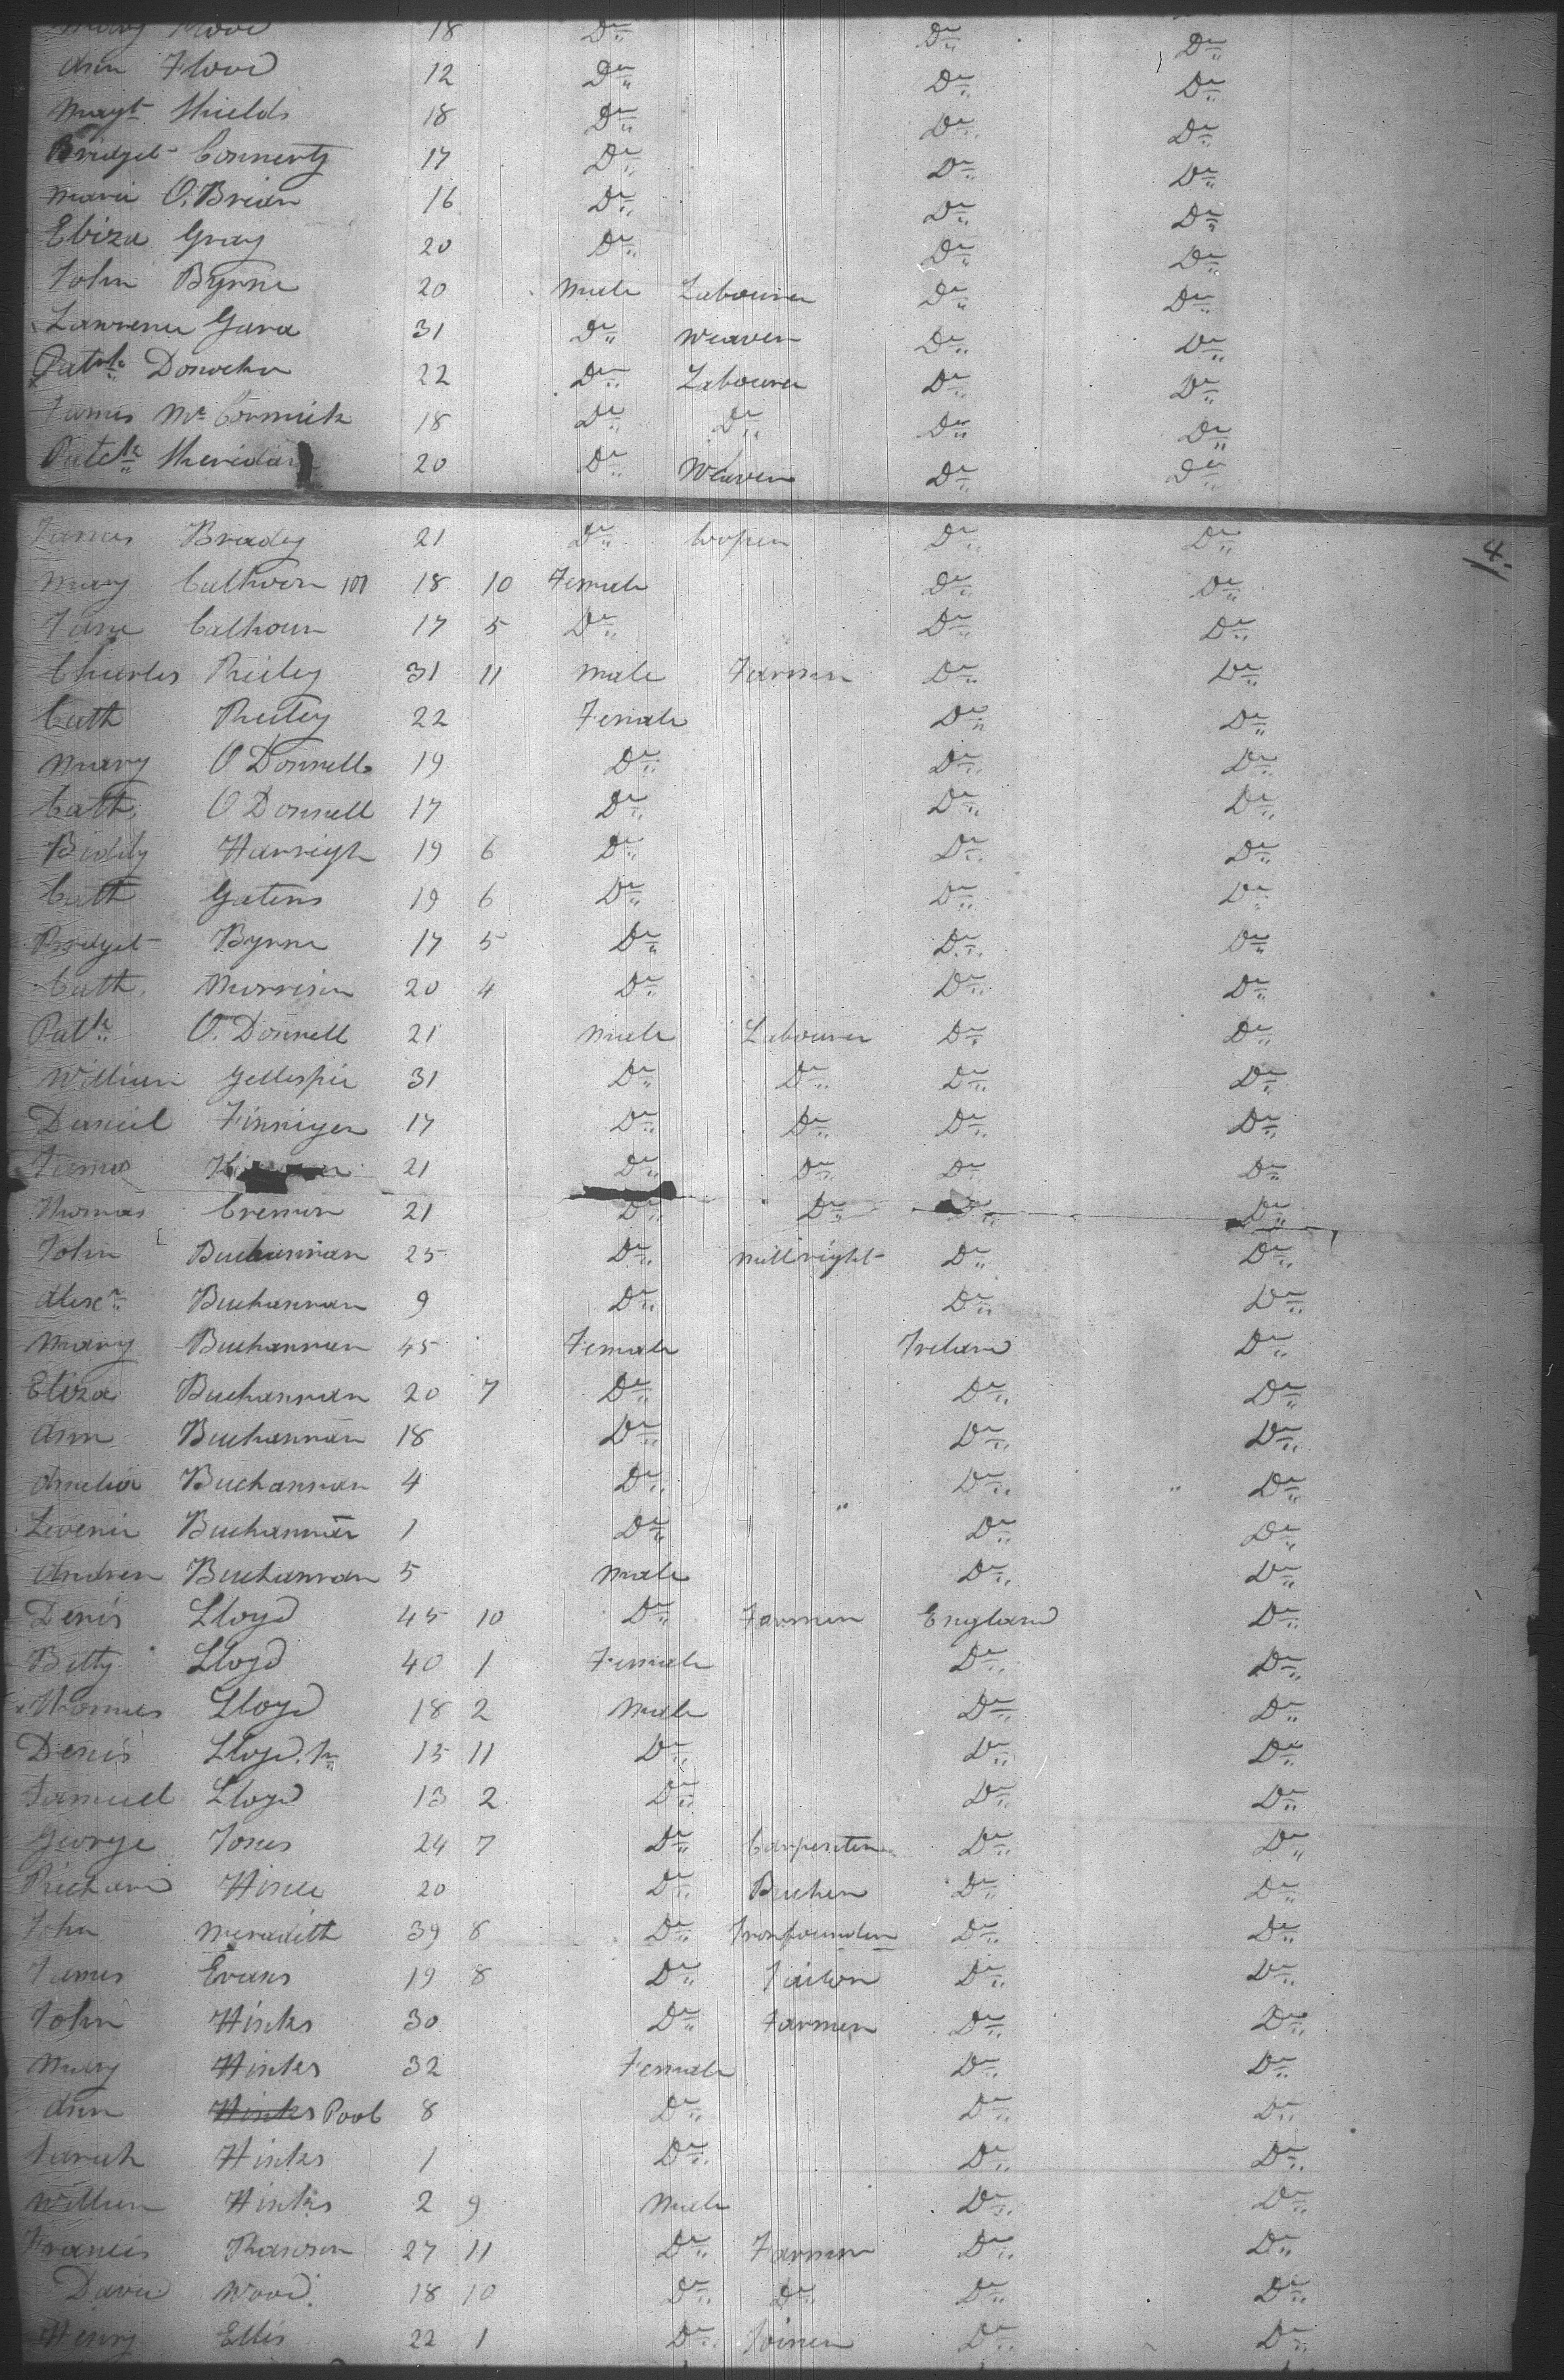 18 Do Do Do
Ann Flood 12 Do Do Do
Margt Shields 18 Do Do Do
Bridget Connerty 17 Do Do Do
Maria O.Brian 16 Do Do Do
Eliza Gray 20 Do Do Do
John Byrne 20 Male Labourer Do Do
Lawrence Gara 31 Do Weaver Do Do
Patck Donocho 22 Do Labourer Do Do
James Mc Cormick 18 Do Do Do Do
Patck Sheridan 20 Do Weaver Do Do
James Brady 21 Do Cooper Do Do
4.
Mary Calhoon 18 10 Female Do Do
Jane Calhoun 17 5 Do Do Do
Charles Reiley 31 11 Male Farmer Do Do
Cath Reiley 22 Female Do Do
Mary O Donnell 19 Do Do Do
Cath O Donnell 17 Do Do Do
Biddy Harreigh 19 6 Do Do Do
Cath Gatens 19 6 Do Do Do
Bridget Byrne 17 5 Do Do Do
Cath Morrison 20 4 Do Do Do
Patk O. Donnell 21 Male Labourer Do Do
William Gellespie 31 Do Do Do Do
Daniel Finnigen 17 Do Do Do Do
James 21 Do Do Do Do
Thomas Cremon 21 Do Do Do Do
John Buchannan 25 Do Millright Do Do
Alexr Buchannan 9 Do Do Do
Mary Buchannan 45 Female Ireland Do
Eliza Buchannan 20 7 Do Do Do
Ann Buchannan 18 Do Do Do
Amelia Buchannan 4 Do Do Do
Levenia Buchannan 1 Do Do Do
Andrew Buchannan 5 Male Do Do
Denis Lloyd 45 10 Do Farmer England Do
Betty Lloyd 40 1 Female Do Do
Thomas Lloyd 18 2 Male Do Do
Denis Lloyd Jr 15 11 Do Do Do
Samuel Lloyd 13 2 Do Do Do
George Jones 24 7 Do Carpenter Do Do
Richard Hince 20 Do Butcher Do Do
John Meradith 39 8 Do Ironfounder Do Do
James Evans 19 8 Do Tailor Do Do
John Hinks 30 Do Farmer Do Do
Mary Hinks 32 Female Do Do
Ann Hinks Pool 8 Do Do Do
Sarah Hinks 1 Do Do Do
William Hinks 2 9 Male Do Do
Francis Ranson 27 11 Do Farmer Do Do
David Wood 18 10 Do Do Do Do
Henry Ellis 22 1 Do Joiner Do Do